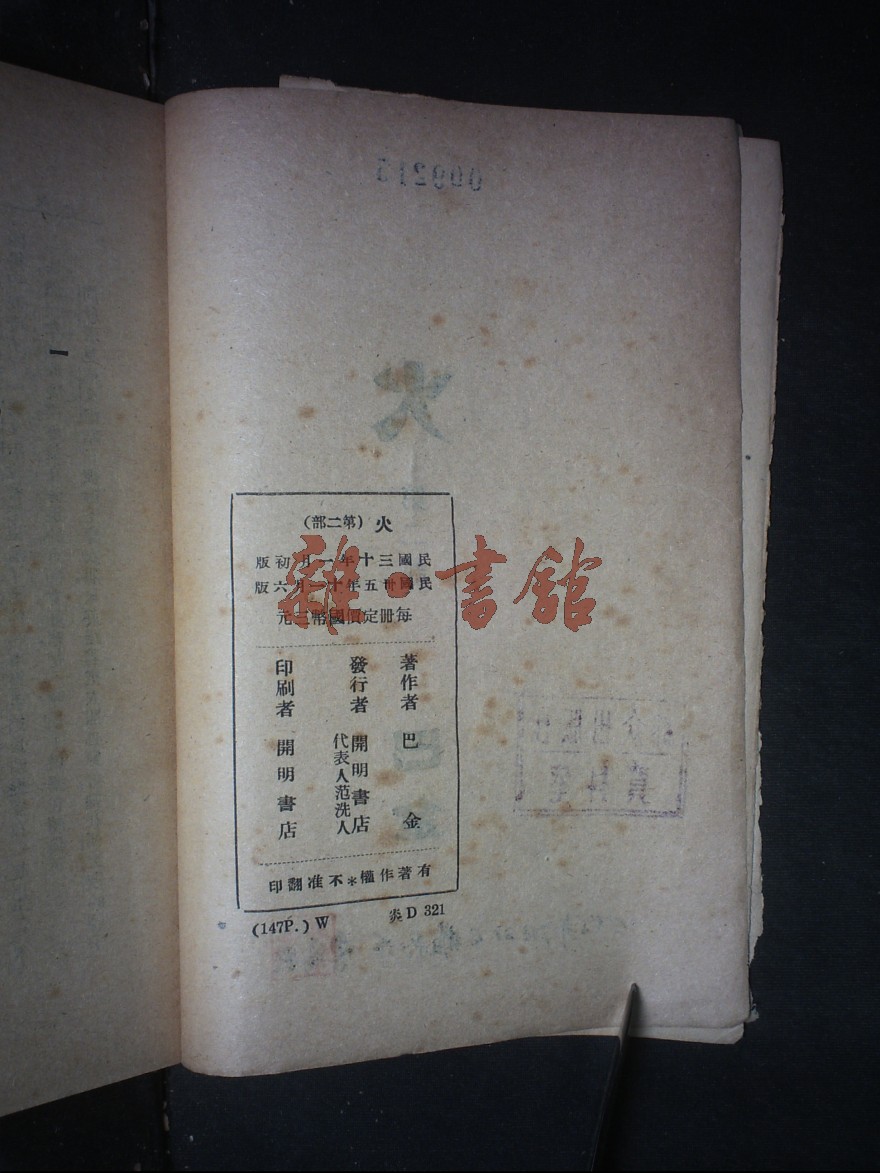 火（第二部）
民國三十年一月初版
民國卅五年十一月六版
每冊定價國幣三元
著作者 巴金
發行者 開明書店
代表人范洗人
印刷者 開明書店
有著作權*不准翻印
(147P.) W 炎 D 321
雜·書館
000215
火